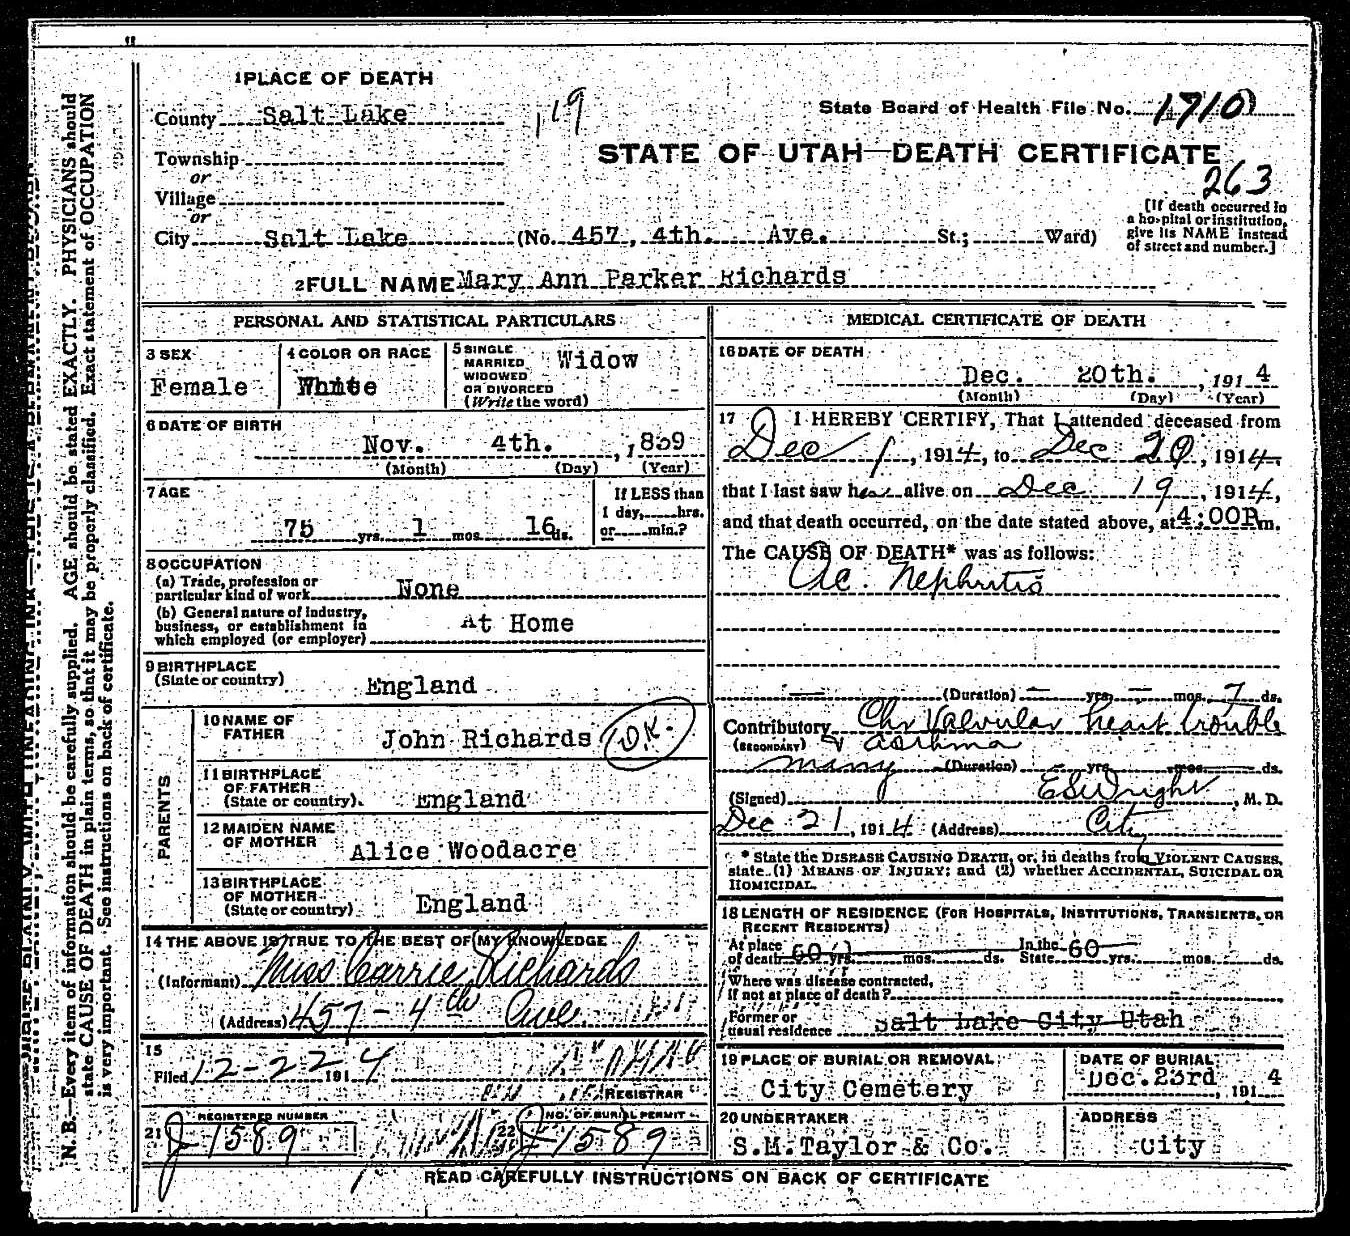 1 PLACE OF DEATH
County Salt Lake
119
State Board of Health File No. 1710
Township
or
Village
or
City Salt Lake (No. 457, 4th. Ave. St.; Ward)
STATE OF UTAH—DEATH CERTIFICATE
263
[If death occurred in
a hospital or institution,
give its NAME instead
of street and number.]
2 FULL NAME Mary Ann Parker Richards
PERSONAL AND STATISTICAL PARTICULARS
3 SEX
Female
4 COLOR OR RACE
White
5 SINGLE
MARRIED
WIDOWED
OR DIVORCED
(Write the word)
Widow
6 DATE OF BIRTH
Nov. 4th. , 1839
(Month) (Day) (Year)
7 AGE
75 yrs. 1 mos. 16 ds.
If LESS than
1 day, hrs.
or min.?
8 OCCUPATION
(a) Trade, profession or
particular kind of work None
(b) General nature of industry,
business, or establishment in
which employed (or employer) At Home
9 BIRTHPLACE
(State or country) England
PARENTS
10 NAME OF
FATHER John Richards D.K.
11 BIRTHPLACE
OF FATHER
(State or country). England
12 MAIDEN NAME
OF MOTHER Alice Woodacre
13 BIRTHPLACE
OF MOTHER
(State or country) England
14 THE ABOVE IS TRUE TO THE BEST OF MY KNOWLEDGE
(Informant) Miss Carrie Richards
(Address) 457 - 4th Ave.
15
Filed 12-22 1914
REGISTRAR
REGISTERED NUMBER
21 J 1589
NO. OF BURIAL PERMIT
22 J 1589
MEDICAL CERTIFICATE OF DEATH
16 DATE OF DEATH
Dec. 20th. , 1914
(Month) (Day) (Year)
17 I HEREBY CERTIFY, That I attended deceased from
Dec 1, 1914, to Dec 20, 1914,
that I last saw her alive on Dec 19, 1914,
and that death occurred, on the date stated above, at 4:00P m.
The CAUSE OF DEATH* was as follows:
Ac. Nephritis
(Duration) — yrs. — mos. 7 ds.
Contributory Chr Valvular heart trouble
(SECONDARY) & asthma
many (Duration) yrs. mos. ds.
(Signed) E S Wright, M. D.
Dec 21, 1914 (Address) City
* State the DISEASE CAUSING DEATH, or, in deaths from VIOLENT CAUSES,
state (1) MEANS OF INJURY; and (2) whether ACCIDENTAL, SUICIDAL OR
HOMICIDAL.
18 LENGTH OF RESIDENCE (FOR HOSPITALS, INSTITUTIONS, TRANSIENTS, OR
RECENT RESIDENTS)
At place
of death 60 yrs. mos. ds. In the
State 60 yrs. mos. ds.
Where was disease contracted,
if not at place of death?
Former or
usual residence Salt Lake City Utah
19 PLACE OF BURIAL OR REMOVAL
City Cemetery
DATE OF BURIAL
Dec. 23rd , 1914
20 UNDERTAKER
S.M. Taylor & Co.
ADDRESS
City
READ CAREFULLY INSTRUCTIONS ON BACK OF CERTIFICATE
N. B.—Every item of information should be carefully supplied. AGE should be stated EXACTLY. PHYSICIANS should
state CAUSE OF DEATH in plain terms, so that it may be properly classified. Exact statement of OCCUPATION
is very important. See instructions on back of certificate.